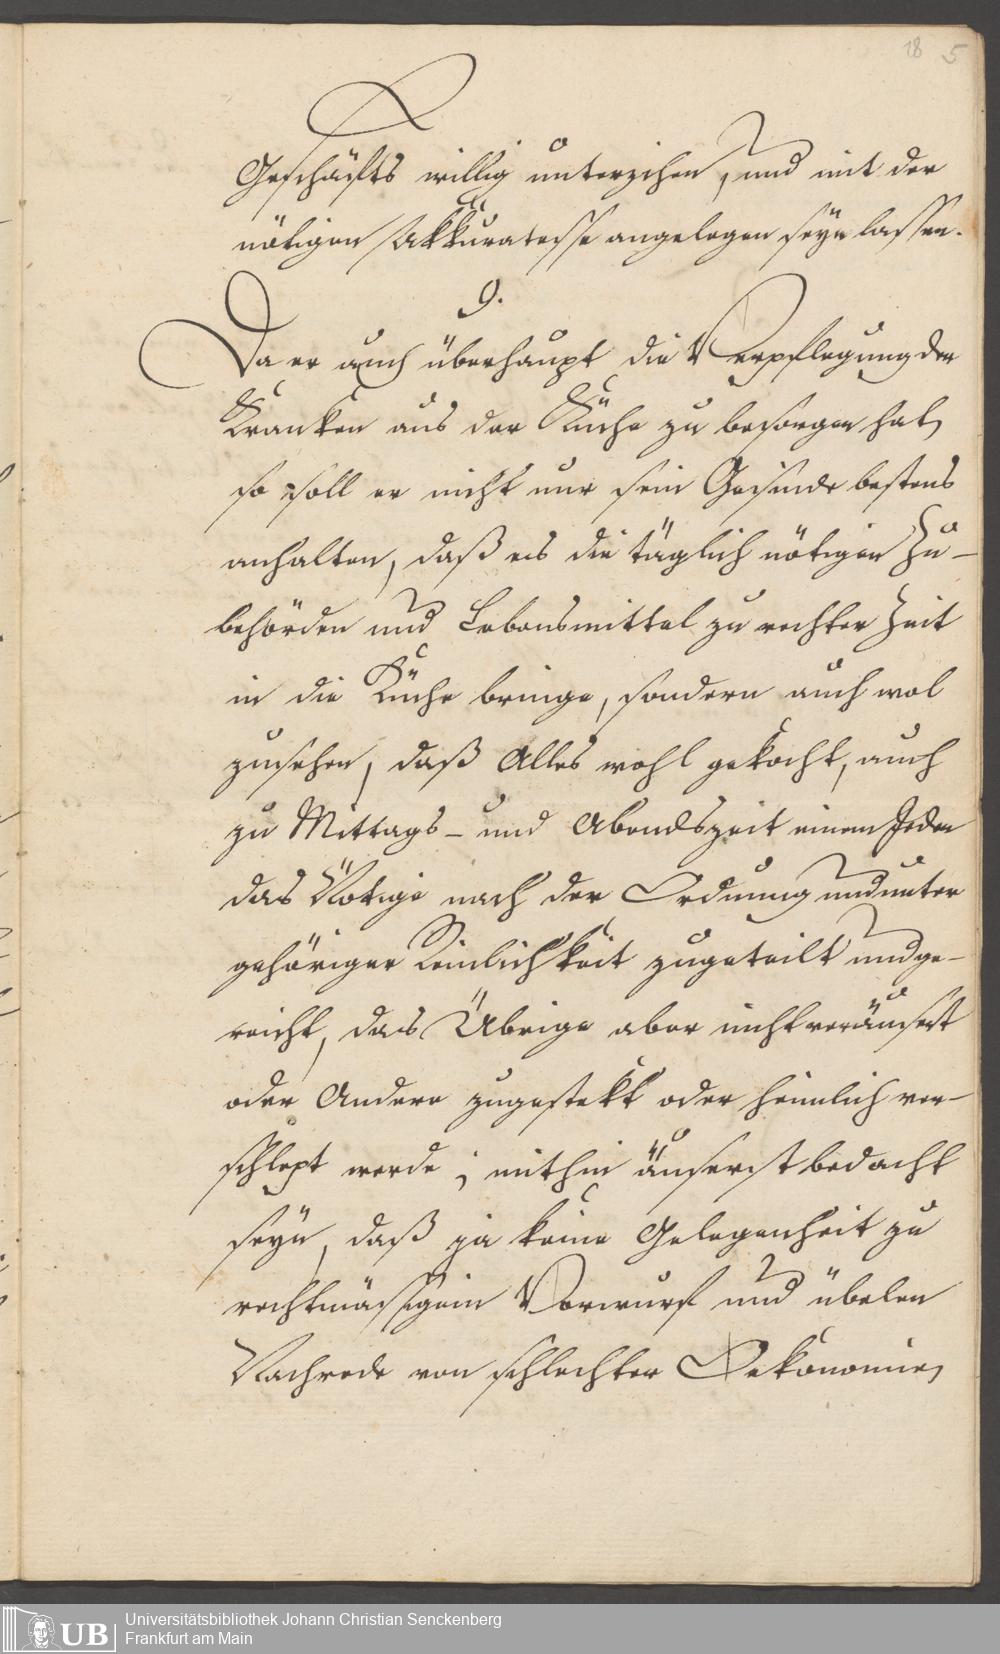 18 5
Geschäfts willig unterzihen, und mit der
nötigen Akkuratesse angelegen seyn lassen.
9.
Da er auch überhaupt die Verpflegung der
Kranken aus der Küche zu besorgen hat,
so soll er nicht nur sein Gesinde bestens
anhalten, daß es die täglich nötigen Zu-
behörden und Lebensmittel zu rechter Zeit
in die Küche bringe, sondern auch wol
zusehen, daß Alles wohl gekocht, auch
zu Mittags- und Abendszeit einem Jeden
das Nötige nach der Ordnung und unter
gehöriger Reinlichkeit zugeteilt und ge-
reicht, das Übrige aber nicht veräusert
oder Andere zugestekt oder heimlich ver-
schlept werde; mithin äuserst bedacht
seyn, daß ja keine Gelegenheit zu
rechtmäsigem Vorwurf und übelen
Nachrede von schlechter Oekonomie,
UB
Universitätsbibliothek Johann Christian Senckenberg
Frankfurt am Main